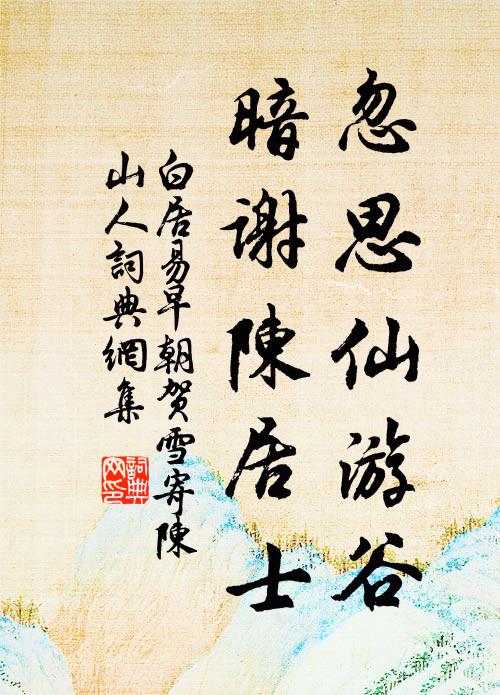 忽思仙游谷
暗谢陳居士
白居易早朝贺雪寄陳
山人詞典網集
詞典网印